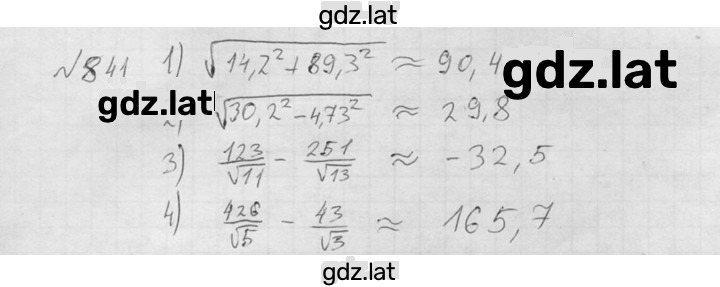 gdz.lat
№841 1) √14,2² + 89,3² ≈ 90,4
gdz.lat
gdz.lat
√30,2² − 4,73² ≈ 29,8
3) 123/√11 − 251/√13 ≈ −32,5
4) 426/√5 − 43/√3 ≈ 165,7
gdz.lat